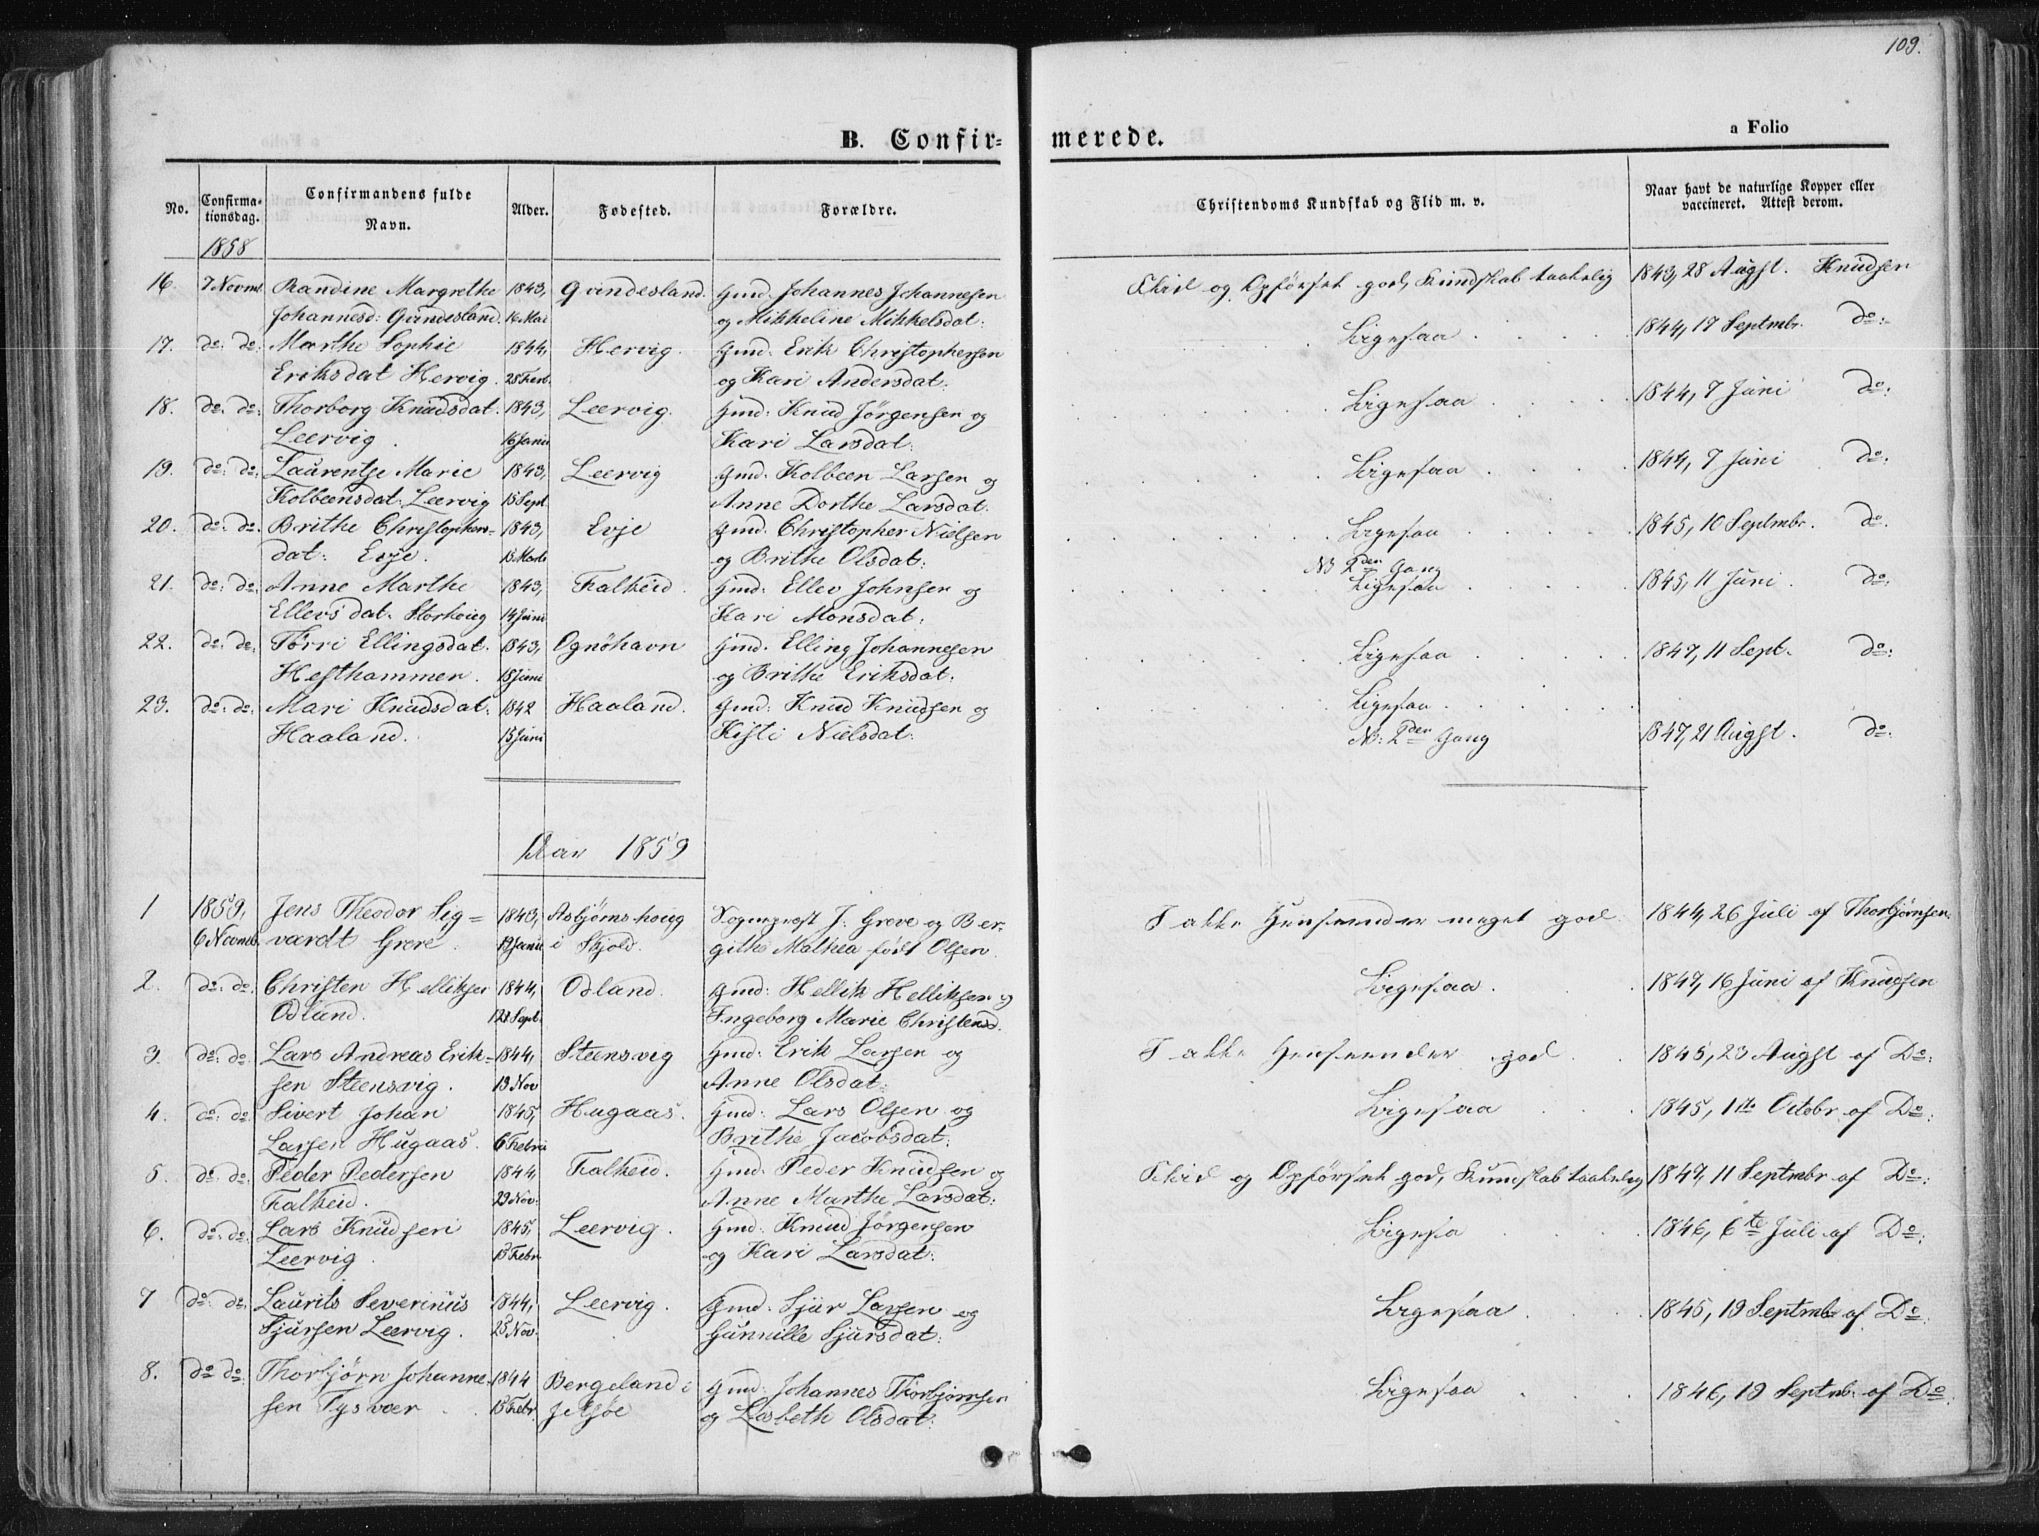 109.
B. Confir=
merede.
a Folio
No.
Confirma-
tionsdag.
Confirmandens fulde
Navn.
Alder.
Fødested.
Forældre.
Christendoms Kundskab og Flid m. v.
Naar havt de naturlige Kopper eller
vaccineret. Attest derom.
1858
16. 7 Novmb. Randine Margrethe 1843, Qvindesland. Gmd. Johannes Johannesen Flid og Opførsel god, Kundskab taalelig 1843, 28 Augst. Knudsen
Johannesd: Qvindesland. 16 Mai og Mikkeline Mikkelsdat:
17. do: do: Marthe Sophie 1844, Hervig. Gmd: Erik Christophersen Ligesaa 1844, 17 Septmbr. do:
Eriksdat Hervig. 28 Febr. og Kari Andersdat:
18. do: do: Thorborg Knudsdat. 1843, Leervig. Gmd: Knud Jörgensen og Ligesaa 1844, 7 Juni do:
Leervig. 16 Janu Kari Larsdat:
19. do: do: Laurentse Marie 1843, Leervig Gmd: Kolbeen Larsen og Ligesaa 1844, 7 Juni do:
Kolbeensdat. Leervig 15 Sept Anne Dorthe Larsdat:
20. do: do: Brithe Christophers= 1843, Evje Gmd: Christopher Nielsen Ligesaa 1845, 10 Septmbr. do.
dat: Evje. 15 Marts og Brithe Olsdat:
NB 2den Gang
21. do: do: Anne Marthe 1843, Falkeid. Gmd: Ellev Johnsen og Ligesaa 1845, 11 Juni. do:
Ellevsdat. Storhoug 14 Juni Kari Monsdat:
22. do: do: Törri Ellingsdat. 1843, Ognöhavn Gmd. Elling Johannesen Ligesaa 1847, 11 Sept. do:
Hesthammer. 15 Juni og Brithe Eriksdat:
23. do: do: Mari Knudsdat: 1842 Haaland. Gmd: Knud Knudsen og Ligesaa
Haaland. 15 Juni Kisti Nielsdat: NB: 2den Gang 1847, 21 Augst. do:
Aar 1859
1 1859, Jens Theodor Sig= 1843, Asbjørnshoug Sogneprest J: Greve og Ber= I alle Henseender meget god 1844, 26 Juli af Thorbjørnsen
6 Novmb. værdt Greve. 19 Janu i Skjold. githe Mathea født Olsen.
2. do: do: Christen Helliksen 1844, Odland. Gmd: Hellik Helliksen og Ligesaa 1847, 16 Juni af Knudsen
Odland. Sept. Ingeborg Marie Christensd.
3. do: do: Lars Andreas Erik= 1844, Steensvig Gmd: Erik Larsen og I alle Henseender god 1845, 23 Augst af Do:
sen Steensvig. 13 Nov Anne Olsdat:
4. do: do: Sivert Johan 1845, Hugaas. Gmd: Lars Olsen og Ligesaa 1845, 1te Octobr. af Do:
Larsen Hugaas. 6 Febru Brithe Jacobsdat:
5. do: do: Peder Pedersen 1844, Falkeid. Gmd: Peder Knudsen og Flid og Opførsel god, Kundskab taalelig 1847, 11 Septmbr af Do:
Falkeid. 29 Nov: Anne Marthe Larsdat:
6. do: do: Lars Knudsen 1845, Leervig. Gmd: Knud Jörgensen Ligesa 1846, 6te Juli af Do:
Leervig. 13 Febr og Kari Larsdat:
7 do: do: Laurits Severinius 1844, Leervig. Gmd: Sjur Larsen og Ligesaa 1845, 19 Septmbr af Do:
Sjursen Leervig. 25 Nov. Gunnille Sjursdat:
8. do do: Thorbjørn Johanne= 1844 Bergeland i Gmd: Johannes Thorbjørnsen Ligesaa 1846, 19 Septmb. af Do
sen Tysvær. 15 Febr. Jelsøe og Lisbeth Olsdat: